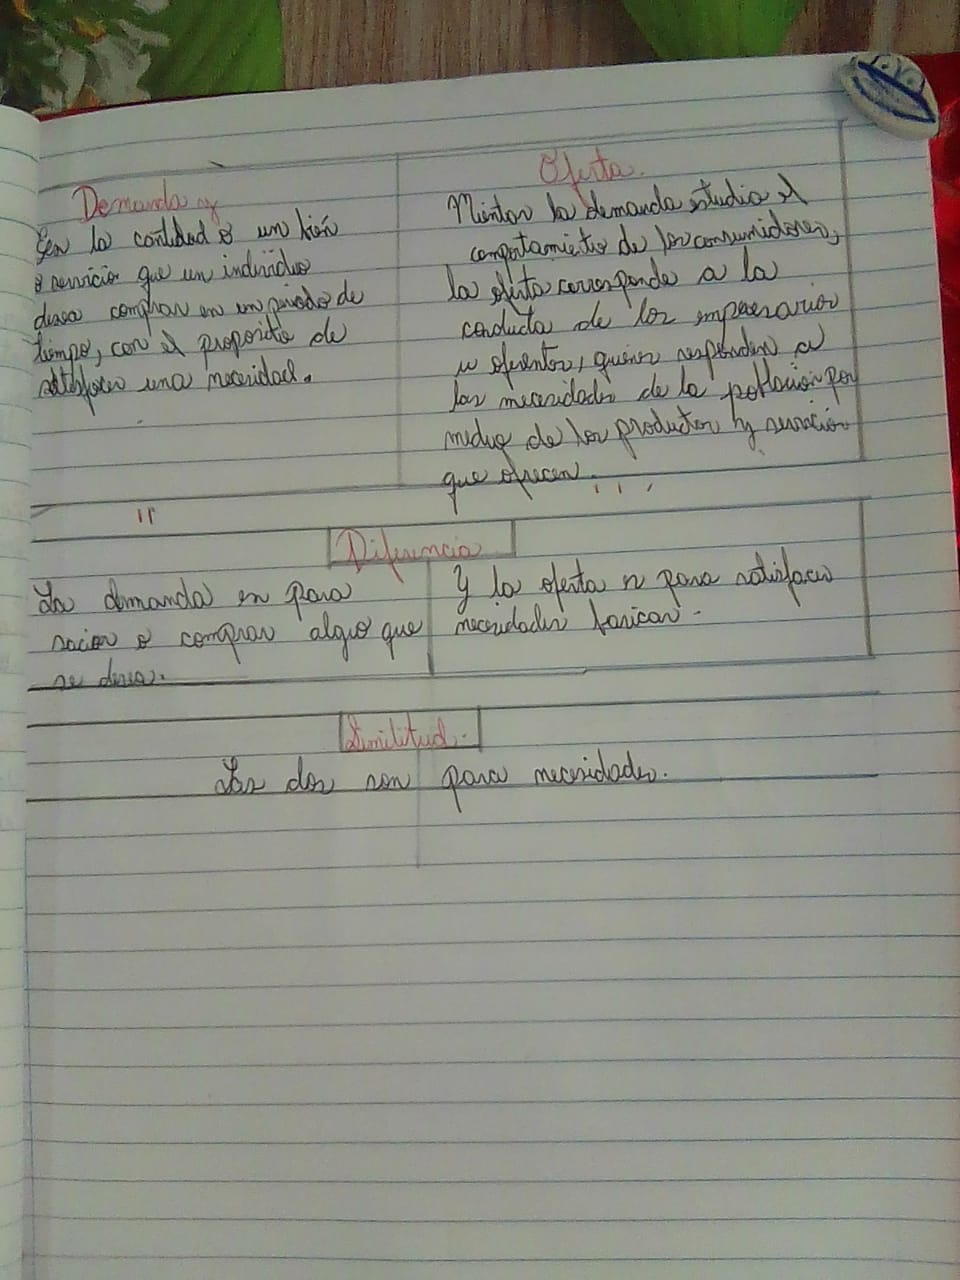 Demanda
Es la cantidad o un bién
o servicio que un individuo
desea comprar en un periodo de
tiempo, con el proposito de
satisfacer una necesidad.
Oferta.
Mientas la demanda estudia el
comportamiento de los consumidores,
la oferta corresponde a la
conducta de los empresarios
u oferentes, quienes responden a
las necesidades de la poblacion por
de los productos y servicios
que ofrecen.
Diferencia
La demanda es para
saciar o comprar algo que
se desea.
Y la oferta es para satisfacer
necesidades basicas.
Similitud.
Las dos son para necesidades.